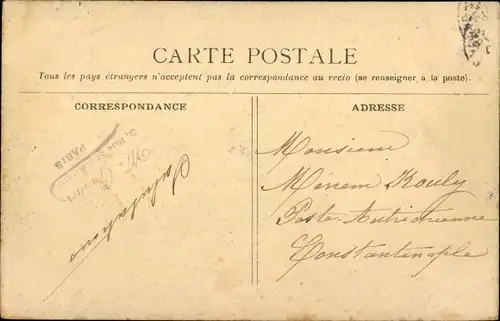 CARTE POSTALE
Tous les pays étrangers n'acceptent pas la correspondance au recto (se renseigner à la poste).
CORRESPONDANCE
ADRESSE
PARIS
Salutations
Monsieur
Ménem Kouly
Poste Autrichienne
Constantinople